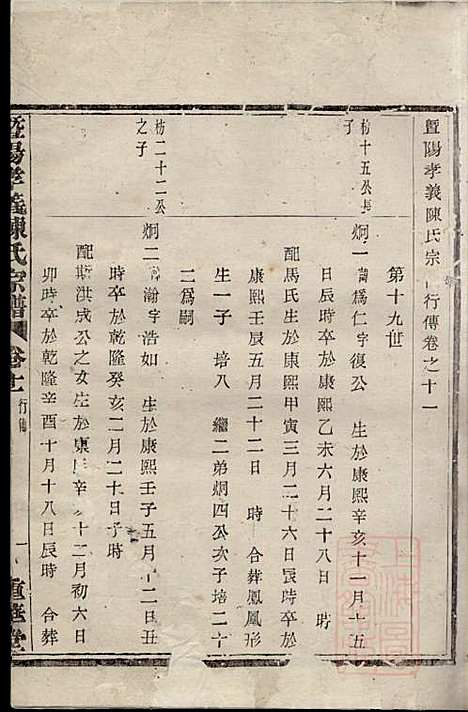 暨陽孝義陳氏宗 行傳卷之十一
第十九世
枋十五公長子
炯一 爲仁字復公 生於康熙辛亥十一月十五
日辰時卒於康熙乙未六月二十八日 時
配馬氏生於康熙甲寅三月二十六日辰時卒於
康熙壬辰五月二十二日 時 合葬鳳凰形
生一子 培八 繼二弟炯四公次子培二十
二爲嗣
枋二十二公之子
炯二 瀚字浩如 生於康熙壬子五月十二日丑
時卒於乾隆癸亥二月二十日子時
配 洪成公之女生於康 辛 十二月初六日
卯時卒於乾隆辛酉十月十八日辰時 合葬
暨陽孝義陳氏宗譜 卷十一 行傳 一 重華堂